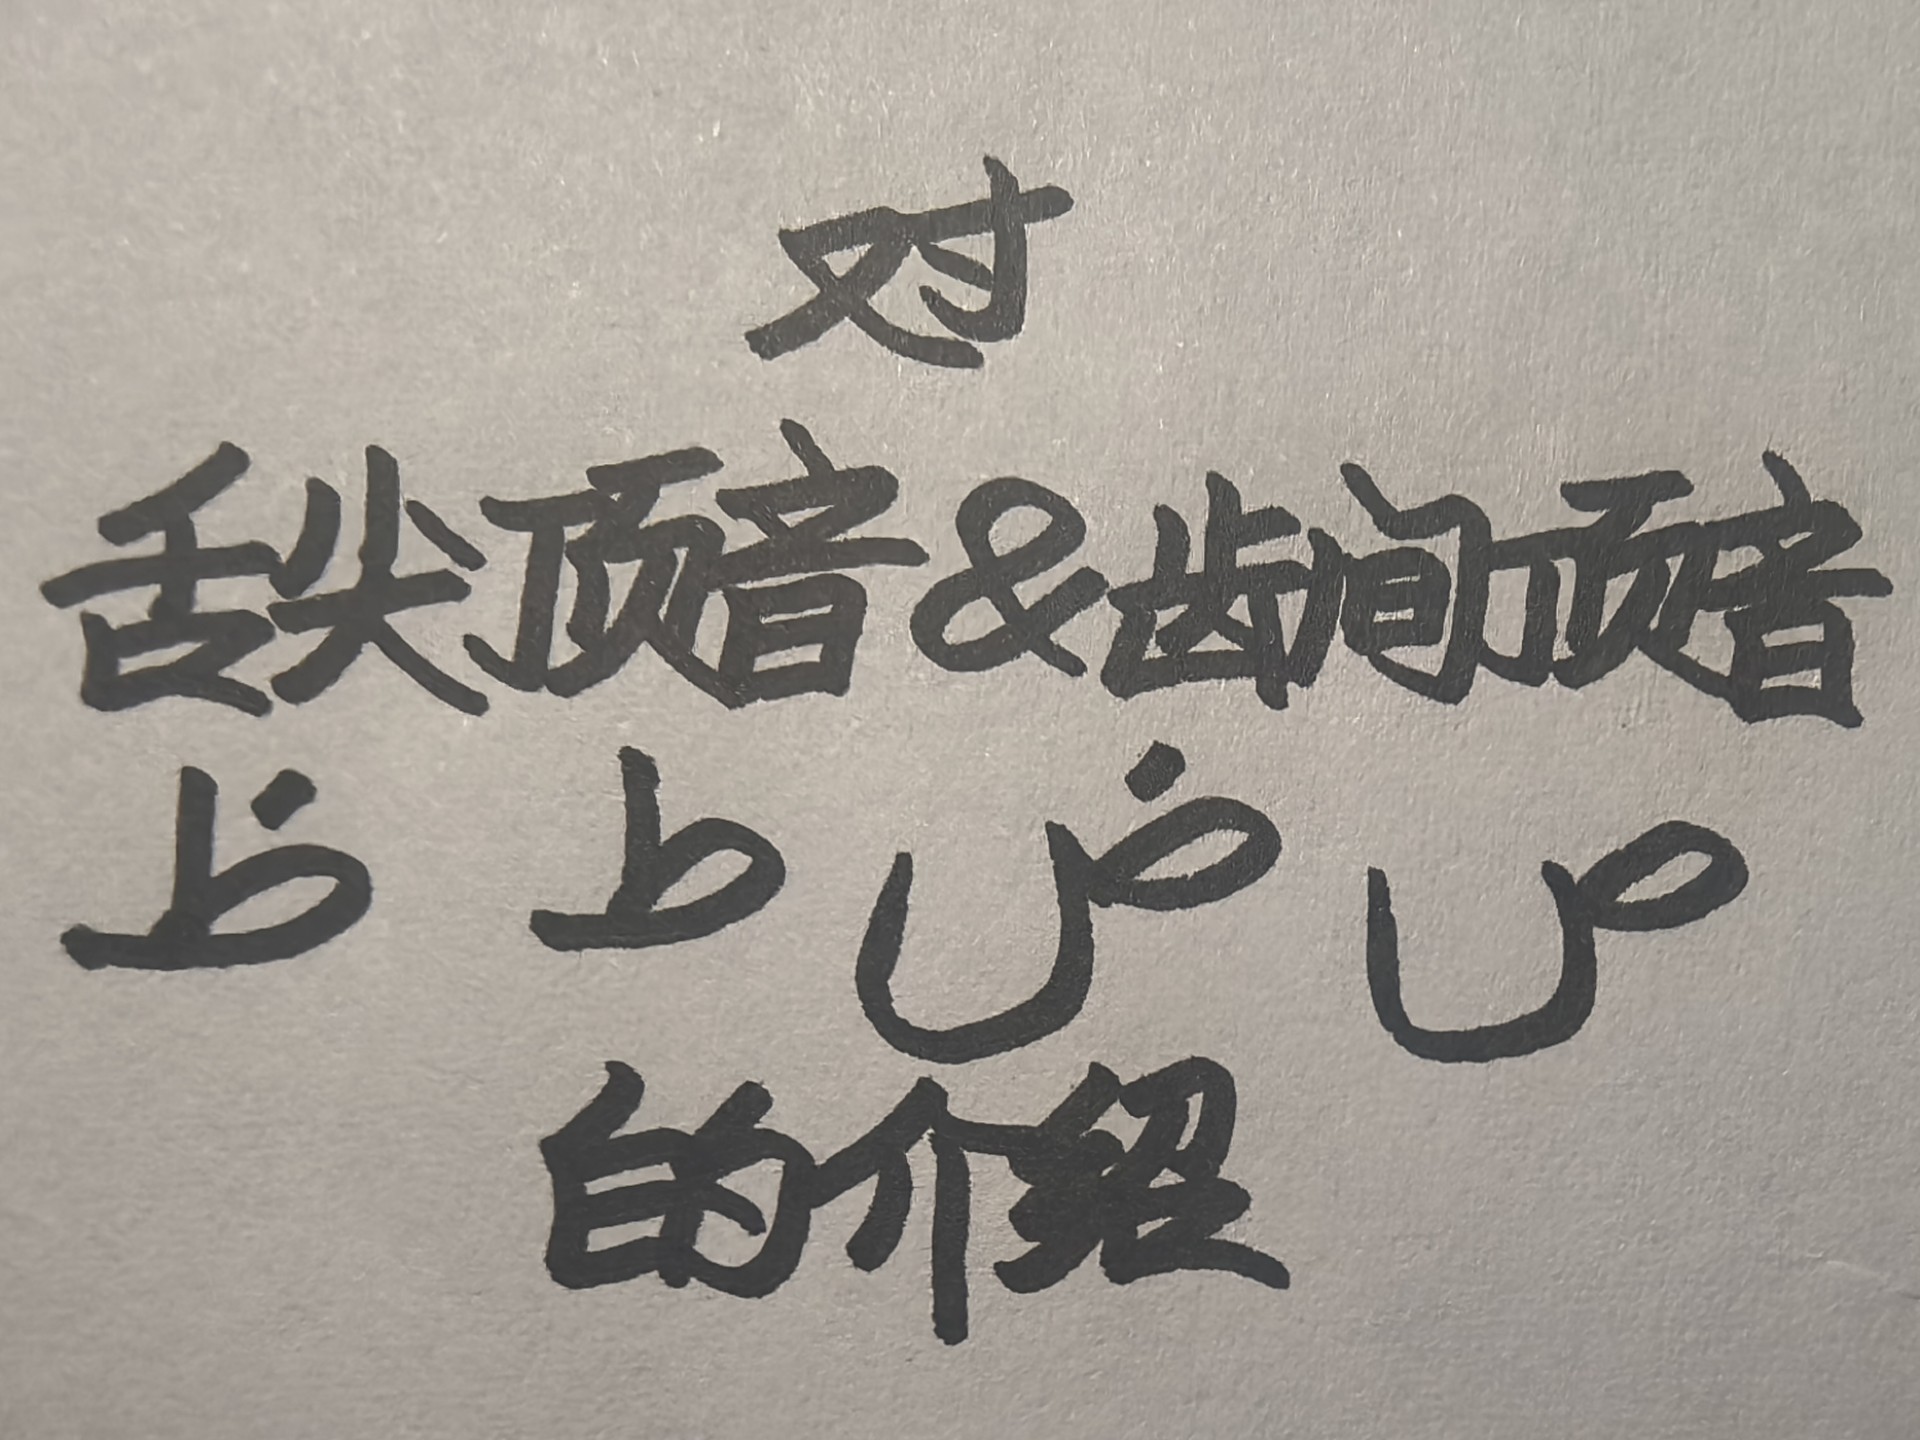 对
舌尖顶音&齿间顶音
ص ض ط ظ
的介绍